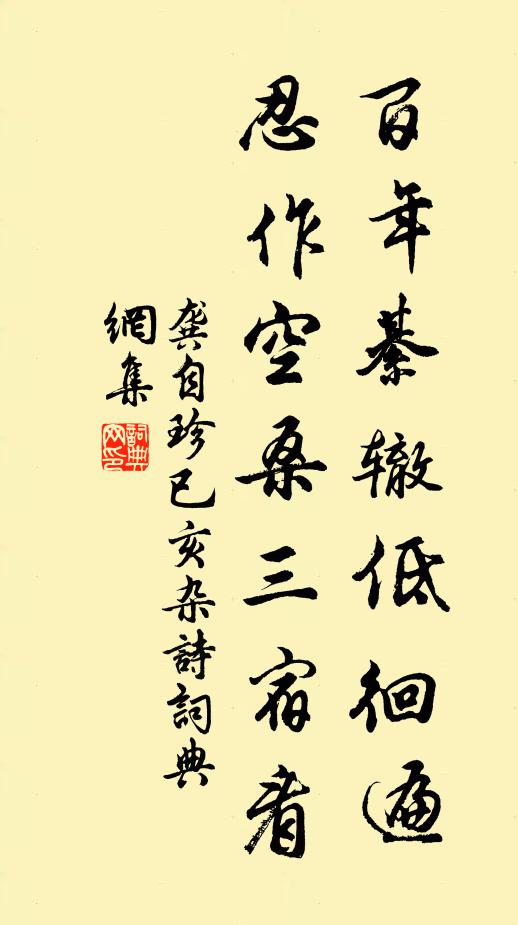 百年綦辙低徊遍
忍作空桑三宿看
龚自珍已亥杂詩詞典
網集
詞典
网印